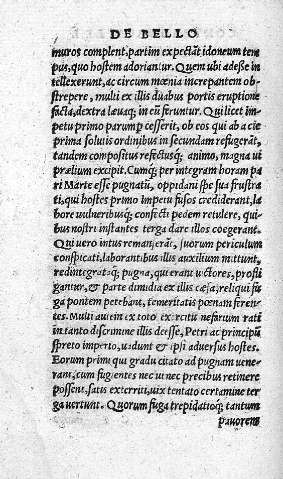 DE BELLO
muros complent, partim expectãt idoneum tem
pus, quo hostem adoriantur. Quem ubi adesse in
tellexerunt, ac circum mœnia increpantem ob-
strepere, multi ex illis duabus portis eruptione
facta, dextra læuaq; in eũ feruntur. Qui licet im
petu primo parump cesserit, ob eos qui ab acie
prima soluis ordinibus in secundam refugerãt,
tandem compositus refectusq; animo, magna ui
prælium excipit. Cumq; per integram horam pa
ri Marte esse pugnatũ, oppidani spe sua frustra
ti, qui hostes primo impetu fusos crediderant, la
bore uulneribusq; confecti pedem retulere, qui-
bus nostri instantes terga dare illos coegerant.
Qui uero intus remanserãt, suorum periculum
conspicati, laborantibus illis auxilium mittunt,
redintegrataq; pugna, qui erant uictores, profli
gantur, & parte dimidia ex illis cæsa, reliqui fu
ga pontem petebant, temeritatis pœnam feren-
tes. Multi autem ex toto exercitu nefarium rati
in tanto discrimine illis deesse, Petri ac principũ
spreto imperio, uadunt & ipsi aduersus hostes.
Eorum primi qui gradu citato ad pugnam uene
rant, cum fugientes nec ui nec precibus retinere
possent, satis exterriti, uix tentato certamine ter
ga uertunt. Quorum fuga trepidatioq; tantum
pauorens